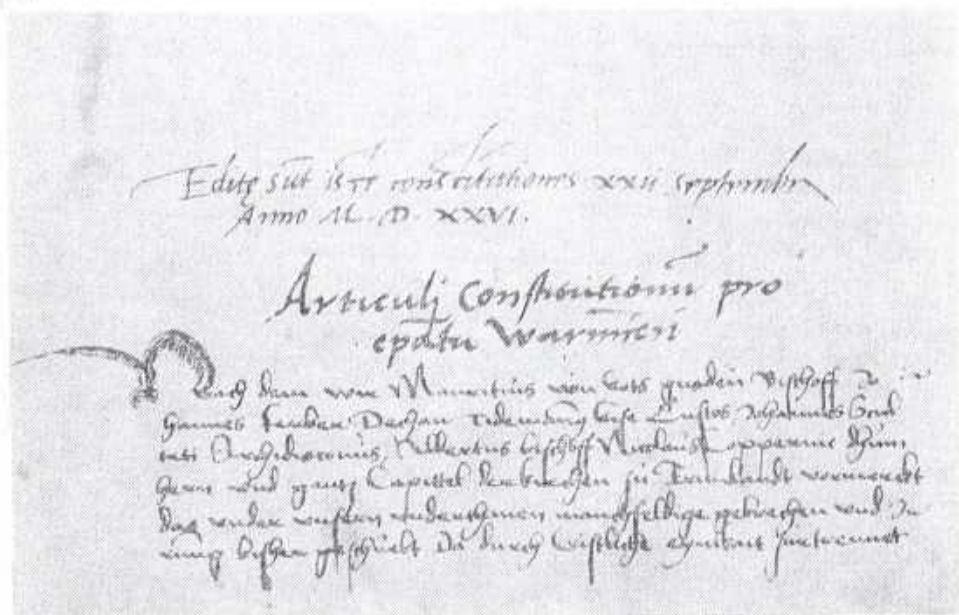 Editę sūt istę constitutiones xxii septembr
Anno M. D. XXVI.
Articulj Constitutionū pro
ep̄atu Warmieñ
Nach dem wir Mauritius von Gots gnaden Bischoff Jo
hannes Dechan Tidemannus Gise Custos Johannes Scul
teti Archidiaconus, Albertus bischoff Nicolaus Coppernic Thum
hern vnd gantz Capittel der kirchen zu Ermlandt vormerckt
das vnder vnsern vnderthanen manchfeldige gebrechen vnd
bisher Da durch eynikait zurtrennet